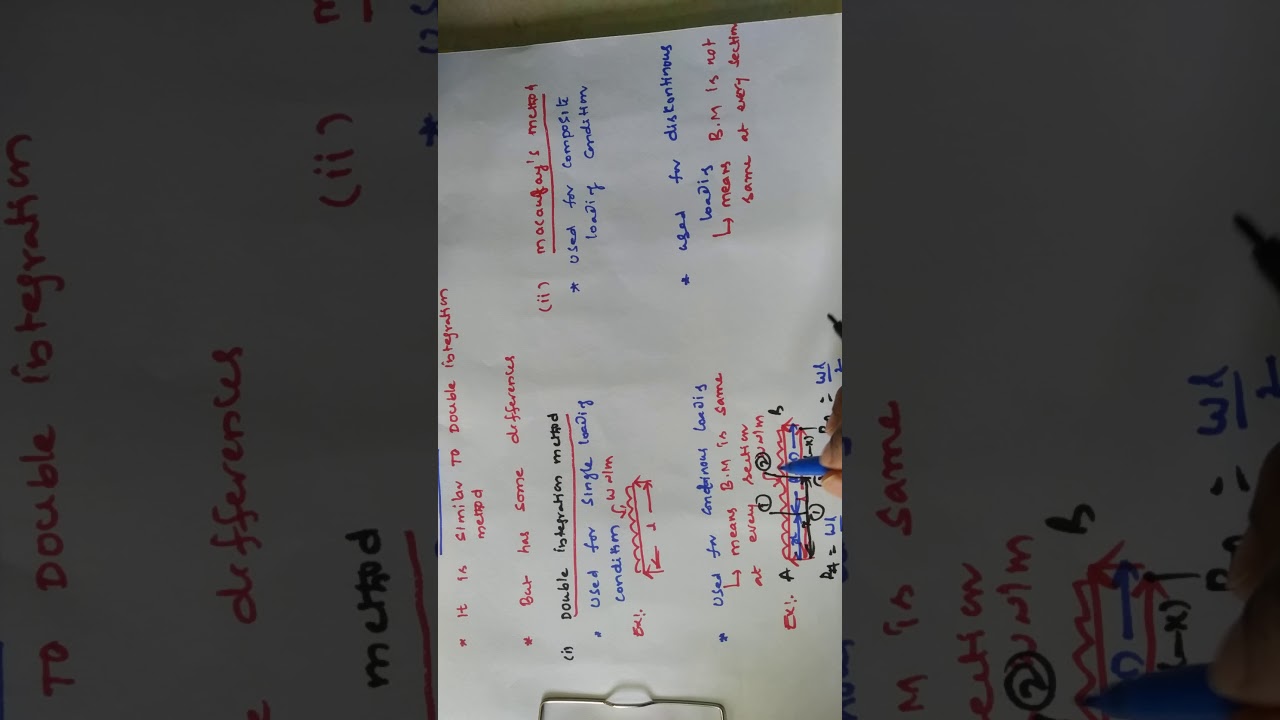 * It is similar to Double integration
method
* But has some differences
(i) Double integration method
* Used for single loading
condition
w N/m
Ex:
l
* Used for continuous loading
↳ means B.M is same
at every section
Ex: A
①
②
w N/m
B
①
x
(l-x)
RA = wl
RB = wl
(ii) macaulay's method
* used for composite
loading condition
* used for discontinous
loading
↳ means B.M is not
same at every section